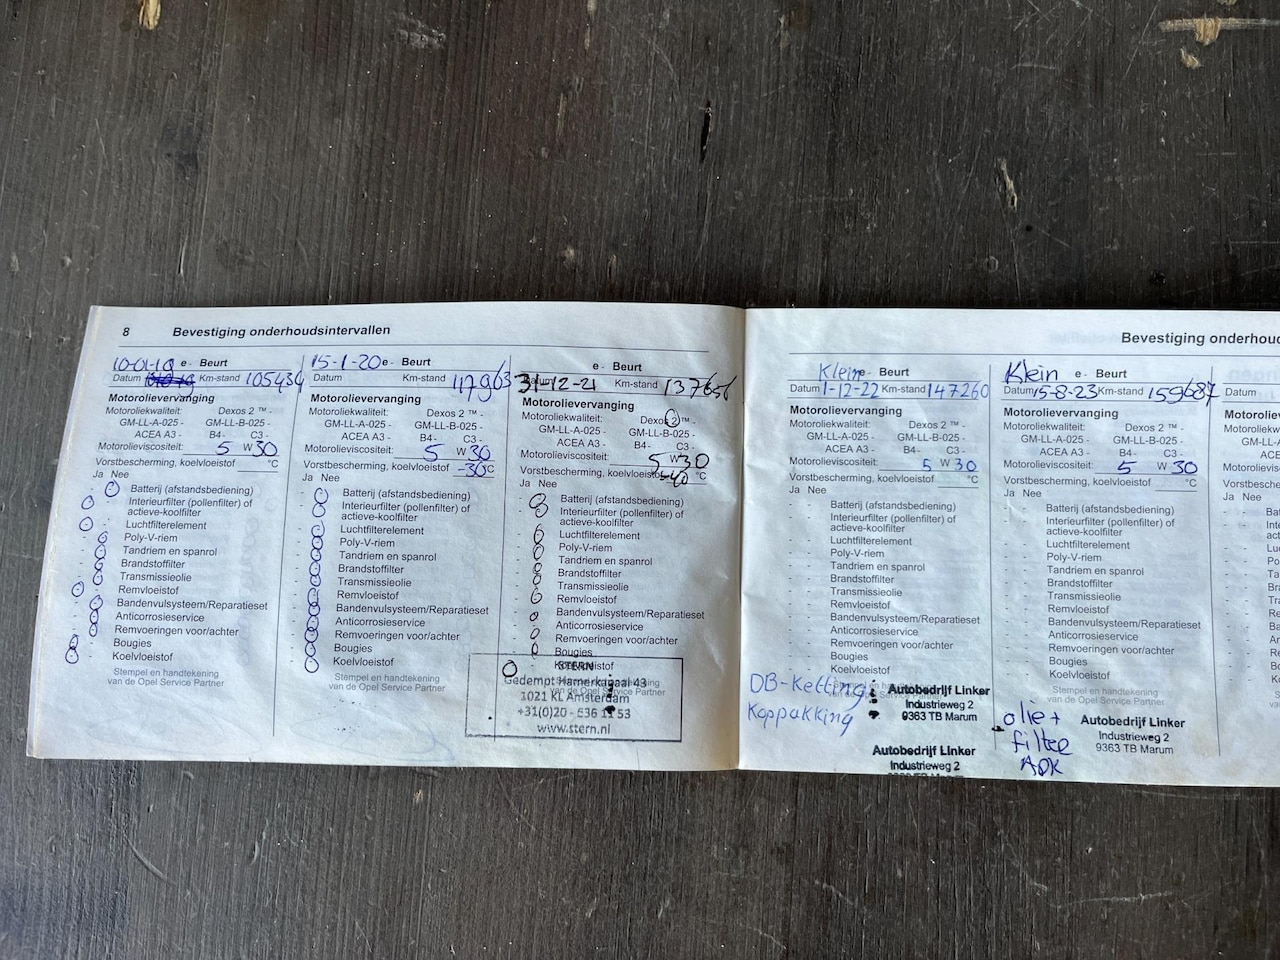 8 Bevestiging onderhoudsintervallen
e - Beurt
Datum Km-stand 105434
Motorolievervanging
Motoroliekwaliteit: Dexos 2 ™ -
GM-LL-A-025 - GM-LL-B-025 -
ACEA A3 - B4 - C3 -
Motorolieviscositeit: 5 W 30
Vorstbescherming, koelvloeistof °C
Ja Nee
Batterij (afstandsbediening)
Interieurfilter (pollenfilter) of
actieve-koolfilter
Luchtfilterelement
Poly-V-riem
Tandriem en spanrol
Brandstoffilter
Transmissieolie
Remvloeistof
Bandenvulsysteem/Reparatieset
Anticorrosieservice
Remvoeringen voor/achter
Bougies
Koelvloeistof
Stempel en handtekening
van de Opel Service Partner
15-1-20 e - Beurt
Datum Km-stand 117963
Motorolievervanging
Motoroliekwaliteit: Dexos 2 ™ -
GM-LL-A-025 - GM-LL-B-025 -
ACEA A3 - B4- C3 -
Motorolieviscositeit: 5 W 30
Vorstbescherming, koelvloeistof -30 °C
Ja Nee
Batterij (afstandsbediening)
Interieurfilter (pollenfilter) of
actieve-koolfilter
Luchtfilterelement
Poly-V-riem
Tandriem en spanrol
Brandstoffilter
Transmissieolie
Remvloeistof
Bandenvulsysteem/Reparatieset
Anticorrosieservice
Remvoeringen voor/achter
Bougies
Koelvloeistof
Stempel en handtekening
van de Opel Service Partner
e - Beurt
Datum 31-12-21 Km-stand 137656
Motorolievervanging
Motoroliekwaliteit: Dexos 2 ™ -
GM-LL-A-025 - GM-LL-B-025 -
ACEA A3 - B4- C3 -
Motorolieviscositeit: 5 W 30
Vorstbescherming, koelvloeistof -40 °C
Ja Nee
Batterij (afstandsbediening)
Interieurfilter (pollenfilter) of
actieve-koolfilter
Luchtfilterelement
Poly-V-riem
Tandriem en spanrol
Brandstoffilter
Transmissieolie
Remvloeistof
Bandenvulsysteem/Reparatieset
Anticorrosieservice
Remvoeringen voor/achter
Bougies
Koelvloeistof
STERN
Gedempt Hamerkanaal 43
1021 KL Amsterdam
+31(0)20 - 636 11 53
www.stern.nl
Bevestiging onderhou
Klein e - Beurt
Datum 1-12-22 Km-stand 147260
Motorolievervanging
Motoroliekwaliteit: Dexos 2 ™ -
GM-LL-A-025 - GM-LL-B-025 -
ACEA A3 - B4- C3 -
Motorolieviscositeit: 5 W 30
Vorstbescherming, koelvloeistof °C
Ja Nee
Batterij (afstandsbediening)
Interieurfilter (pollenfilter) of
actieve-koolfilter
Luchtfilterelement
Poly-V-riem
Tandriem en spanrol
Brandstoffilter
Transmissieolie
Remvloeistof
Bandenvulsysteem/Reparatieset
Anticorrosieservice
Remvoeringen voor/achter
Bougies
Koelvloeistof
DB-Ketting
Koppakking
Autobedrijf Linker
Industrieweg 2
9363 TB Marum
Autobedrijf Linker
Industrieweg 2
Klein e - Beurt
Datum 15-8-23 Km-stand 159687
Motorolievervanging
Motoroliekwaliteit: Dexos 2 ™ -
GM-LL-A-025 - GM-LL-B-025 -
ACEA A3 - B4- C3 -
Motorolieviscositeit: 5 W 30
Vorstbescherming, koelvloeistof °C
Ja Nee
Batterij (afstandsbediening)
Interieurfilter (pollenfilter) of
actieve-koolfilter
Luchtfilterelement
Poly-V-riem
Tandriem en spanrol
Brandstoffilter
Transmissieolie
Remvloeistof
Bandenvulsysteem/Reparatieset
Anticorrosieservice
Remvoeringen voor/achter
Bougies
Koelvloeistof
Stempel en handtekening
olie +
filter
APK
Autobedrijf Linker
Industrieweg 2
9363 TB Marum
Datum
Motorolieve
Motoroliekw
GM-L
Motorolievis
Vorstbesch
Ja Nee
Ba
Int
ac
Lu
Po
Ta
Br
Tr
Re
Ba
An
Re
Bo
Ko